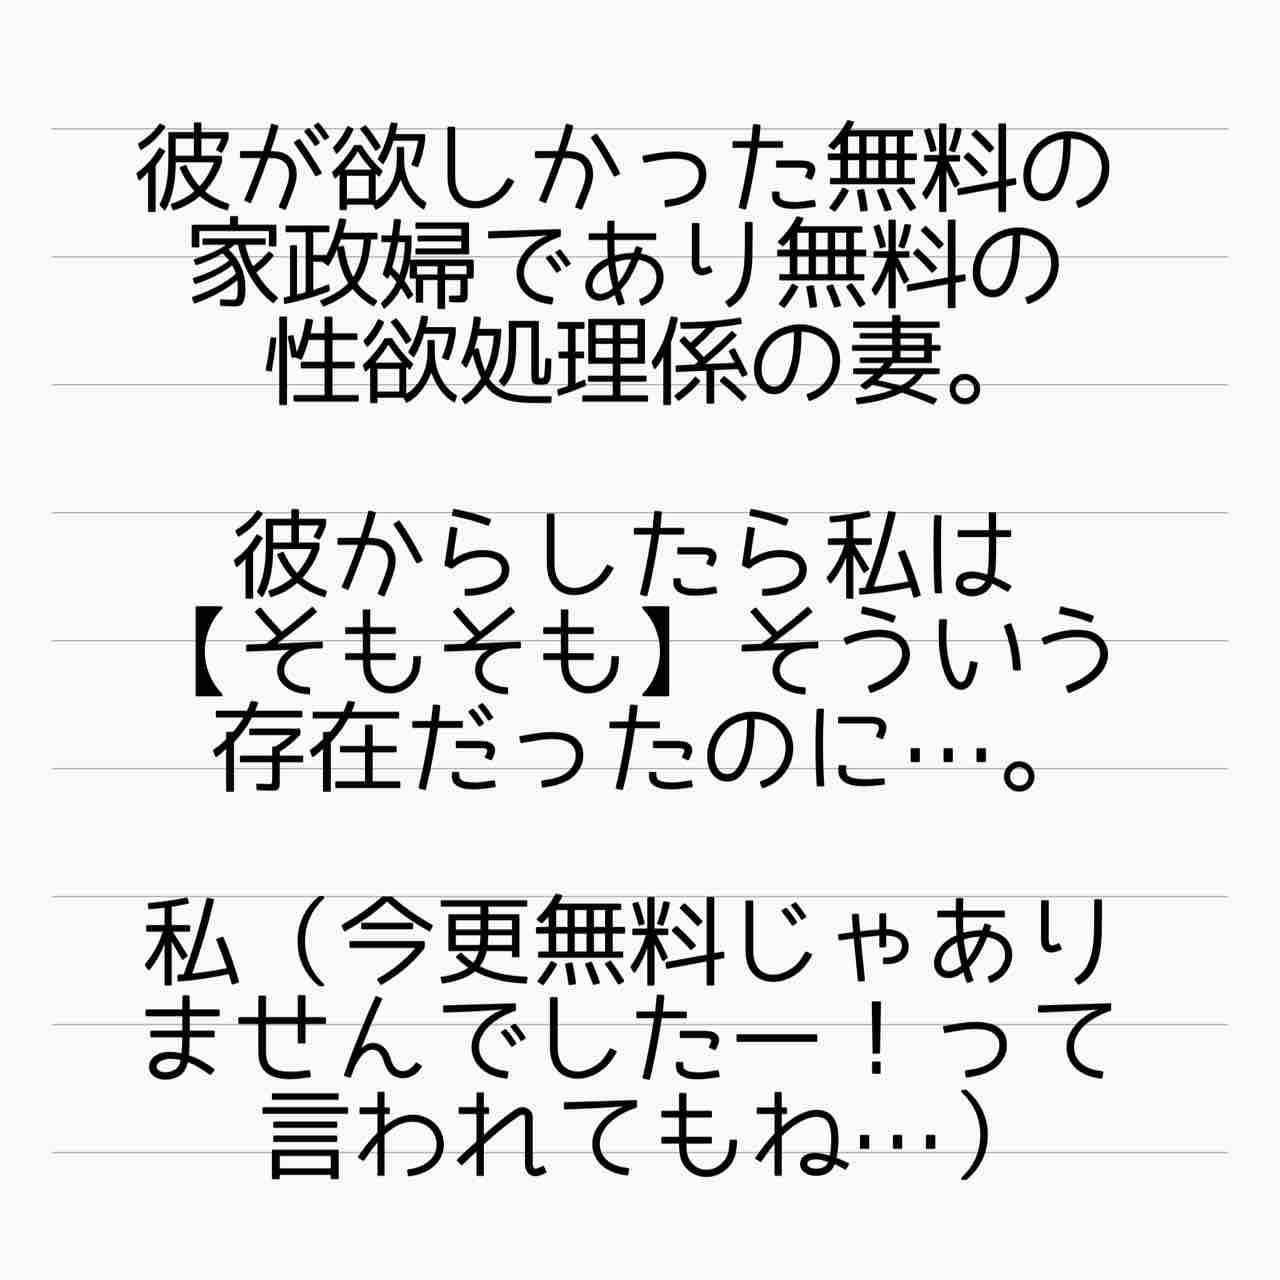 彼が欲しかった無料の
家政婦であり無料の
性欲処理係の妻。
彼からしたら私は
【そもそも】そういう
存在だったのに…。
私（今更無料じゃあり
ませんでしたー！って
言われてもね…）